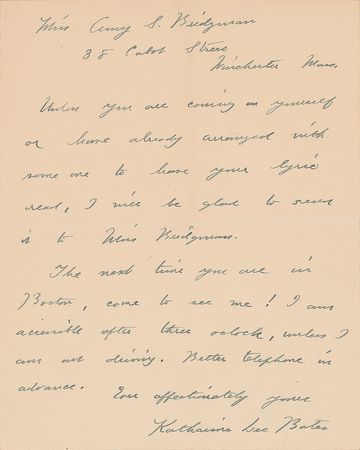 Miss Amy S. Bridgman
38 Cabot Street
Winchester Mass.
Unless you are coming on yourself
or have already arranged with
some one to have your lyric
read, I will be glad to send
it to Miss Bridgman.
The next time you are in
Boston, come to see me! I am
accessible after three oclock, unless I
am out driving. Better telephone in
advance.
Ever affectionately yours
Katharine Lee Bates